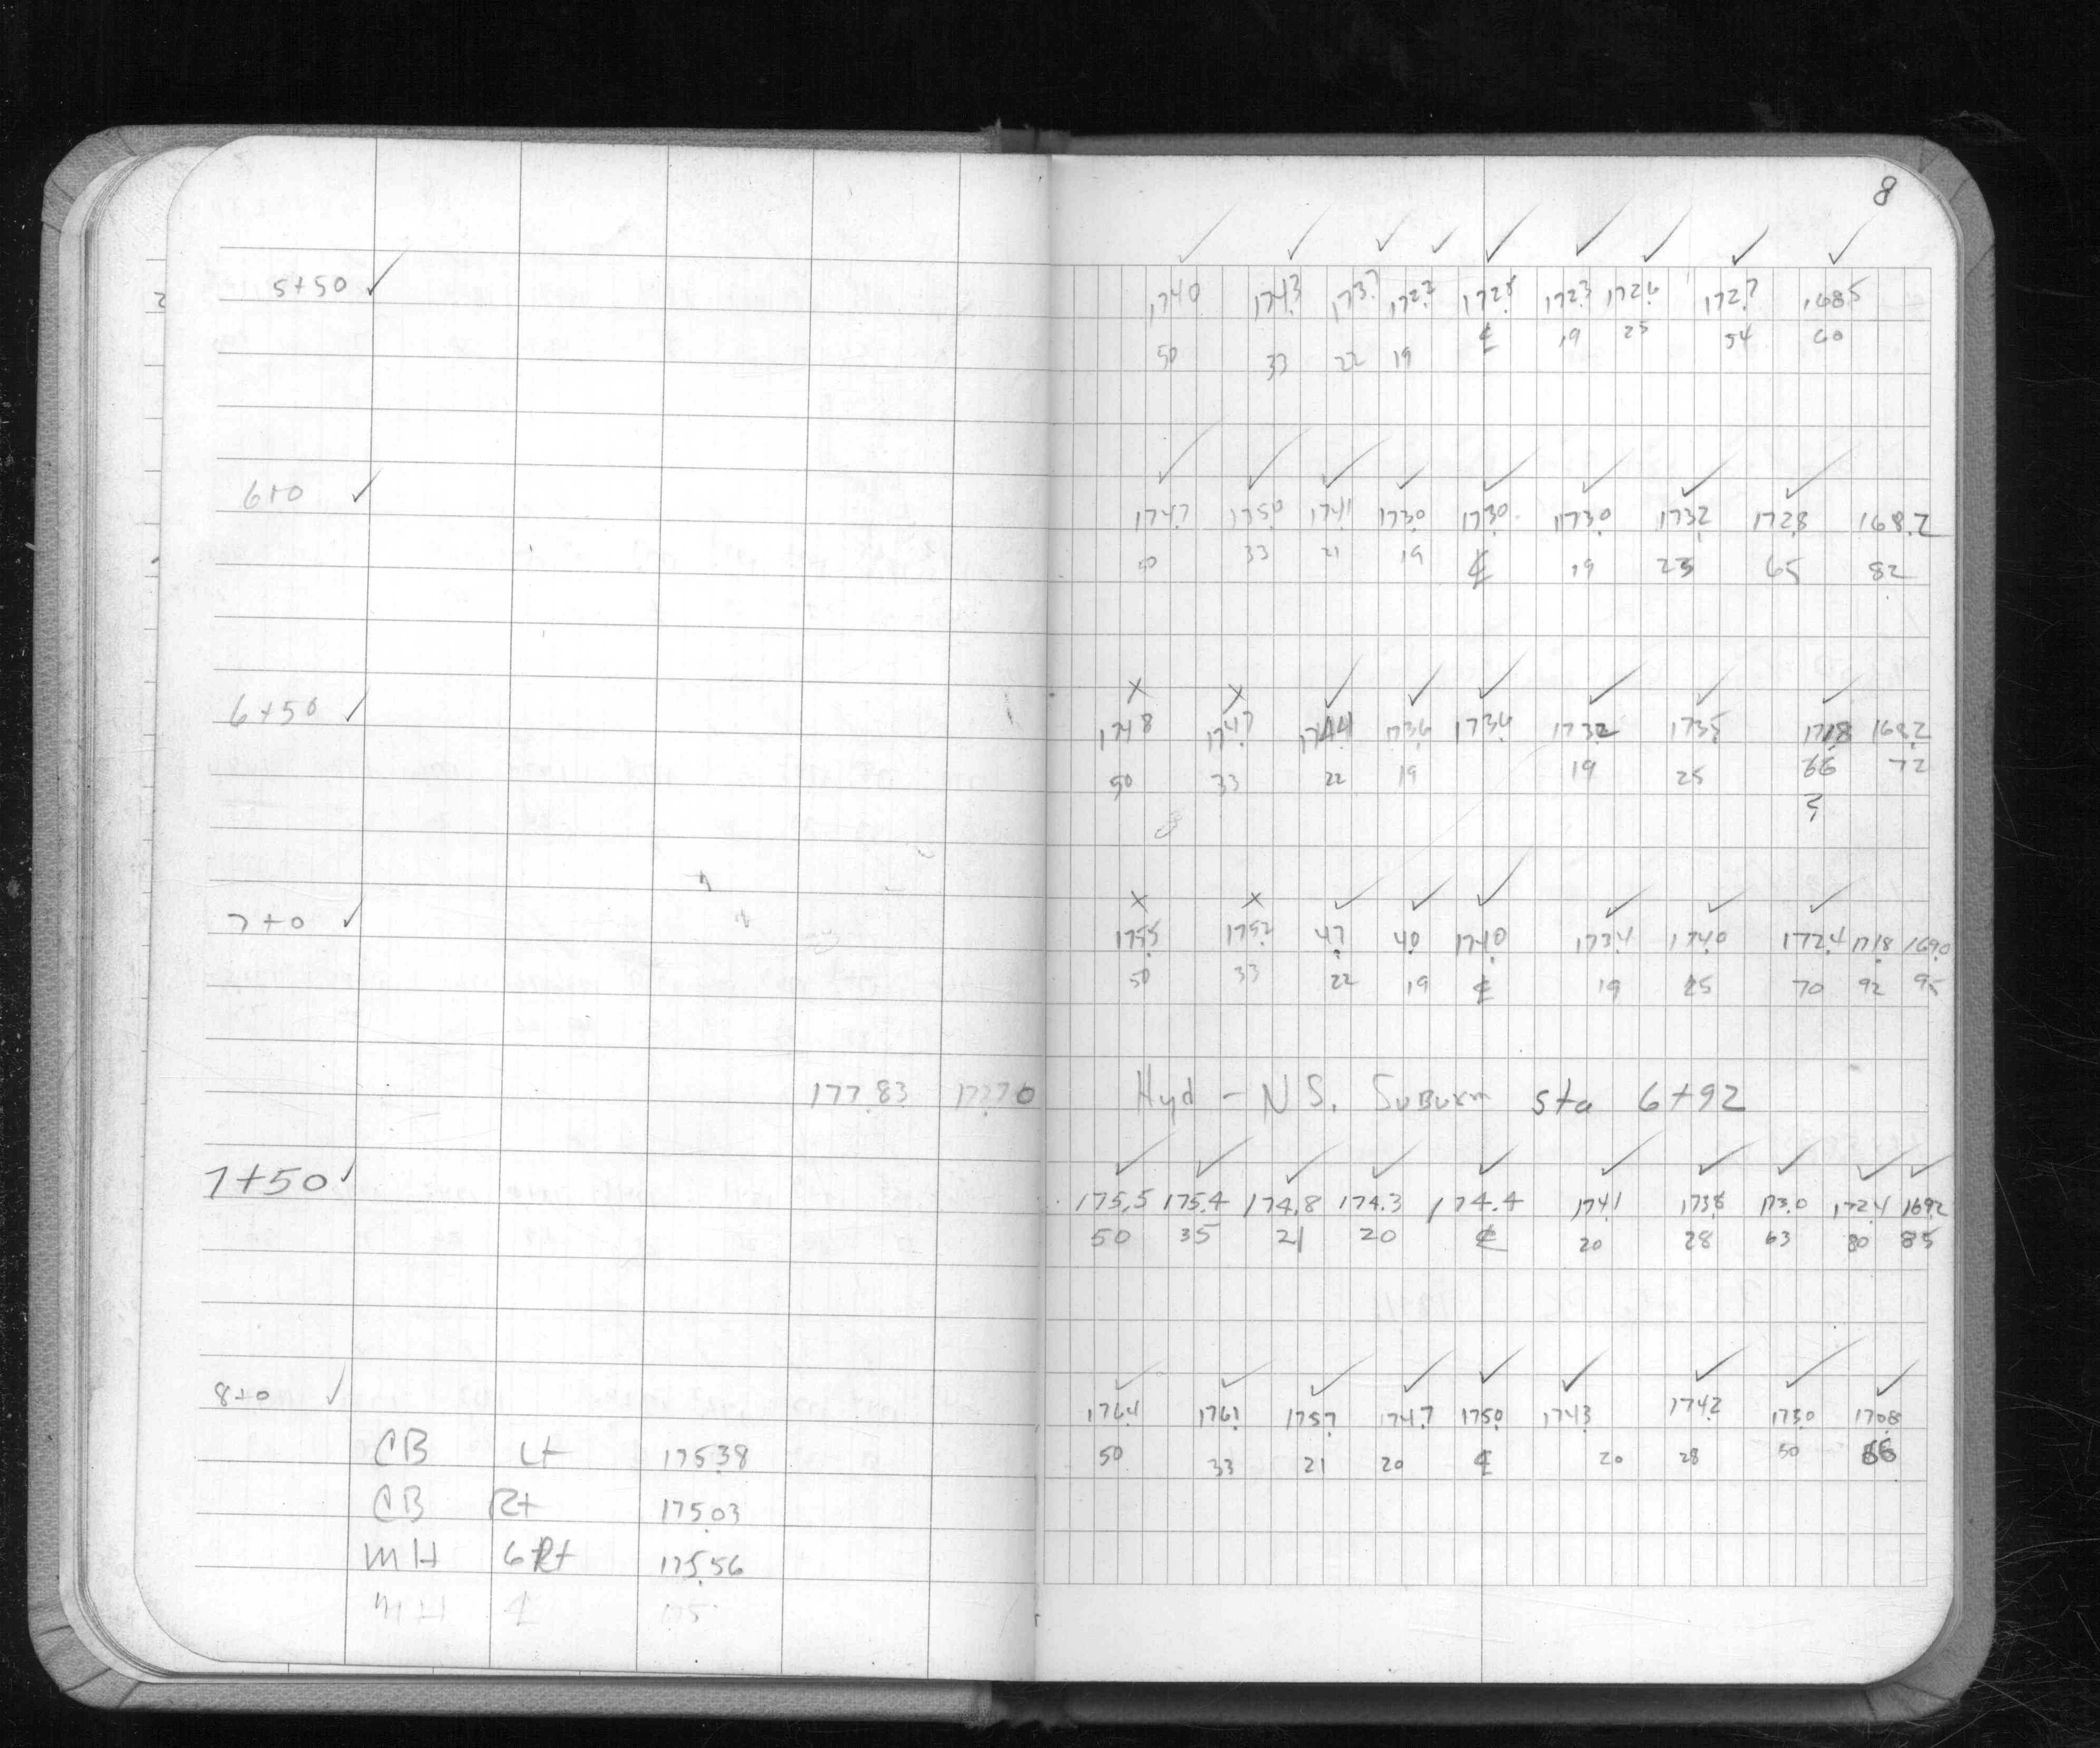 8
5+50 ✓ 174.0 174.3 173.7 172.2 172.8 172.3 172.6 172.7 168.5
50 33 22 19 ℄ 19 25 54 60
6+0 ✓ 174.7 175.0 174.1 173.0 173.0 173.0 173.2 172.8 168.2
50 33 21 19 ℄ 19 23 65 82
6+50 ✓ 174.8 174.7 174.1 173.6 173.4 173.2 173.5 171.8 168.2
50 33 22 19 19 25 66 72
?
7+0 ✓ 175.5 175.2 47 40 174.0 173.4 174.0 172.4 171.8 169.0
50 33 22 19 ℄ 19 25 70 92 95
177.83 Hyd - N.S. sta 6+92
7+50 ✓ 175.5 175.4 174.8 174.3 174.4 174.1 173.8 173.0 172.4 169.2
50 35 21 20 ℄ 20 28 63 80 85
8+0 ✓ 176.4 176.1 175.7 174.7 175.0 174.3 174.2 173.0 170.8
50 33 21 20 ℄ 20 28 50
CB Lt 175.38
CB Rt 175.03
MH 6 Rt 175.56
MH ℄ 175